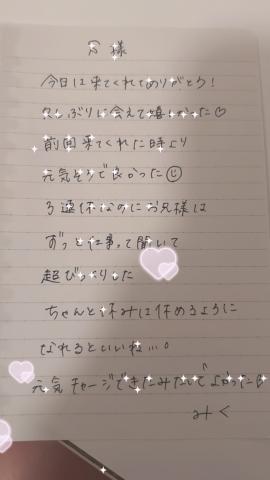 今日は来てくれてありがとう!
久しぶりに会えて嬉しかった♡
前回来てくれた時より
元気そうで良かった
3連休なのにお兄様は
ずっと仕事って聞いて
超びっくりした
ちゃんと休みは休めるように
なれるといいね...。
元気チャージできたみたいでよかった
みく